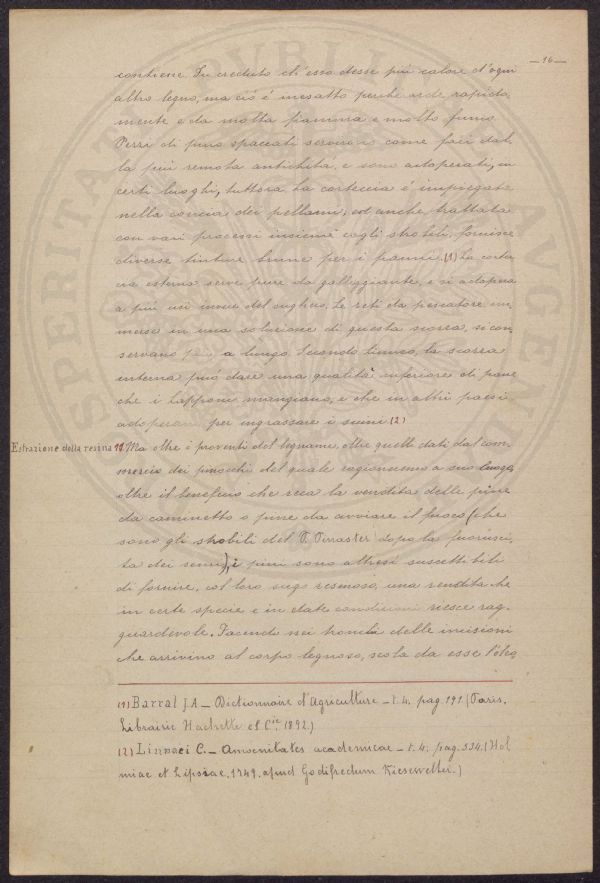 — 16 —
contiene. Fu creduto ch'esso desse più calore d'ogni
altro legno, ma ciò è inesatto perché arde rapida-
mente e da molta fiamma e molto fumo.
Pezzi di pino spaccati servirono come faci dal-
la più remota antichità, e sono adoperati, in
certi luoghi, tuttora. La corteccia è impiegata
nella concia dei pellami; ed anche, trattata
con vari processi insieme cogli strobili, fornisce
diverse tinture brune per i panni. (1) La corte-
cia esterna serve pure da galleggiante, e si adopera
a più usi invece del sughero. Le reti da pescatore im-
merse in una soluzione di questa scorza, si con-
servano più a lungo. Secondo Linneo, la scorza
interna può dare una qualità inferiore di pane
che i Lapponi mangiano, e che in altri paesi
adoperano per ingrassare i suini (2)
Estrazione della resina 11. Ma oltre i proventi del legname, oltre quelli dati dal com-
mercio dei pinocchi del quale ragioneremo a suo luogo,
oltre il beneficio che reca la vendita delle pine
da caminetto o pine da avviare il fuoco (che
sono gli strobili del P. Pinaster dopo la fuorusci-
ta dei semi), i pini sono altresì suscettibili
di fornire, col loro sugo resinoso, una rendita che
in certe specie e in date condizioni riesce rag-
guardevole. Facendo nei tronchi delle incisioni
che arrivino al corpo legnoso, scola da esse l'oleo
(1) Barral J. A. — Dictionnaire d'Agriculture — t. 4. pag. 191. (Paris.
Librairie Hachette et C.ie 1892.)
(2) Linnaei C. — Amoenitates academicae — t. 4. pag. 534. (Hol
miae et Lipsiae. 1749. apud Godifredum Kiesewetter.)